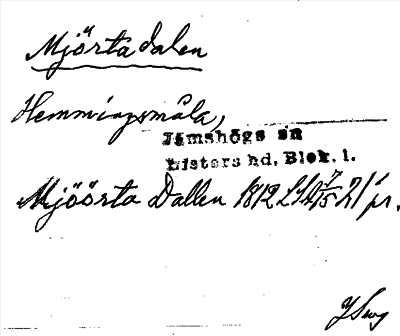 Mjörtadalen
Hemmingsmåla,
Jämshögs sn
Listers hd, Blek. l.
Mjöörta Dallen 1812